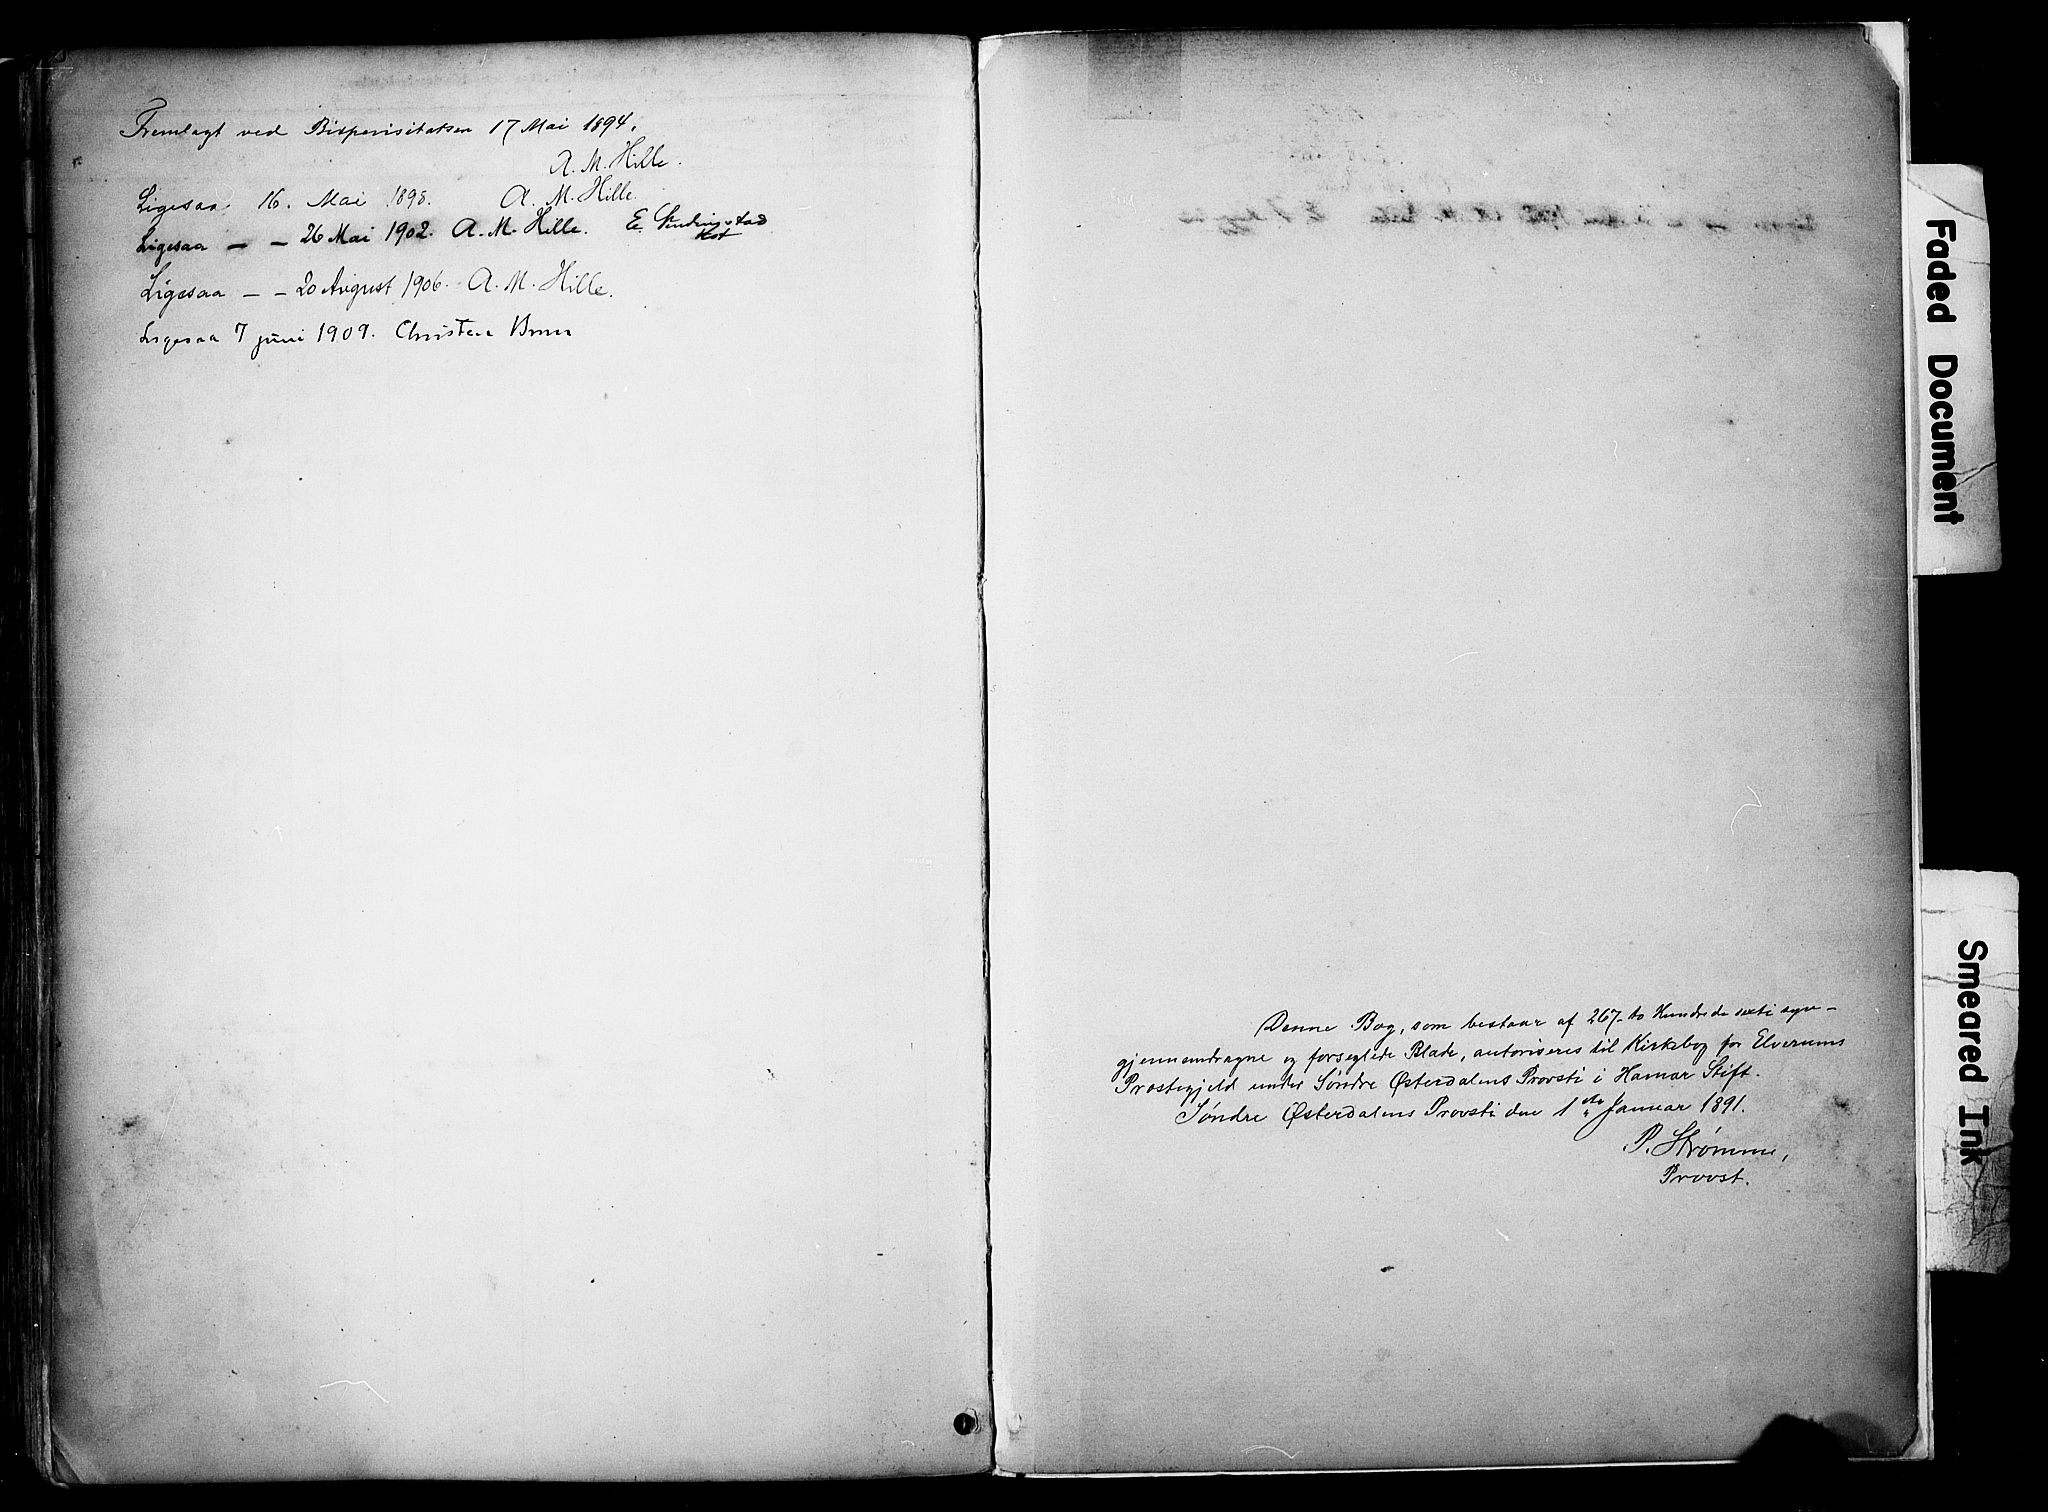 Fremlagt ved Bispevisitatsen 17 Mai 1894.
A. M. Hille.
Ligesaa 16. Mai 1898. A. M. Hille.
Ligesaa — — 26 Mai 1902. A. M. Hille. E.
Ligesaa — — 20 August 1906. A. M. Hille.
Ligesaa 7 juni 1909. Christen Brun
Denne Bog, som bestaar af 267 - to Hundrede sexti syv -
gjennemdragne og forseglede Blade, autoriseres til Kirkebog for Elverums
Præstegjeld under Søndre Østerdalens Provsti i Hamar Stift.
Søndre Østerdalens Provsti den 1ste Januar 1891.
P. Strømme,
Provst.
Faded Document
Smeared Ink